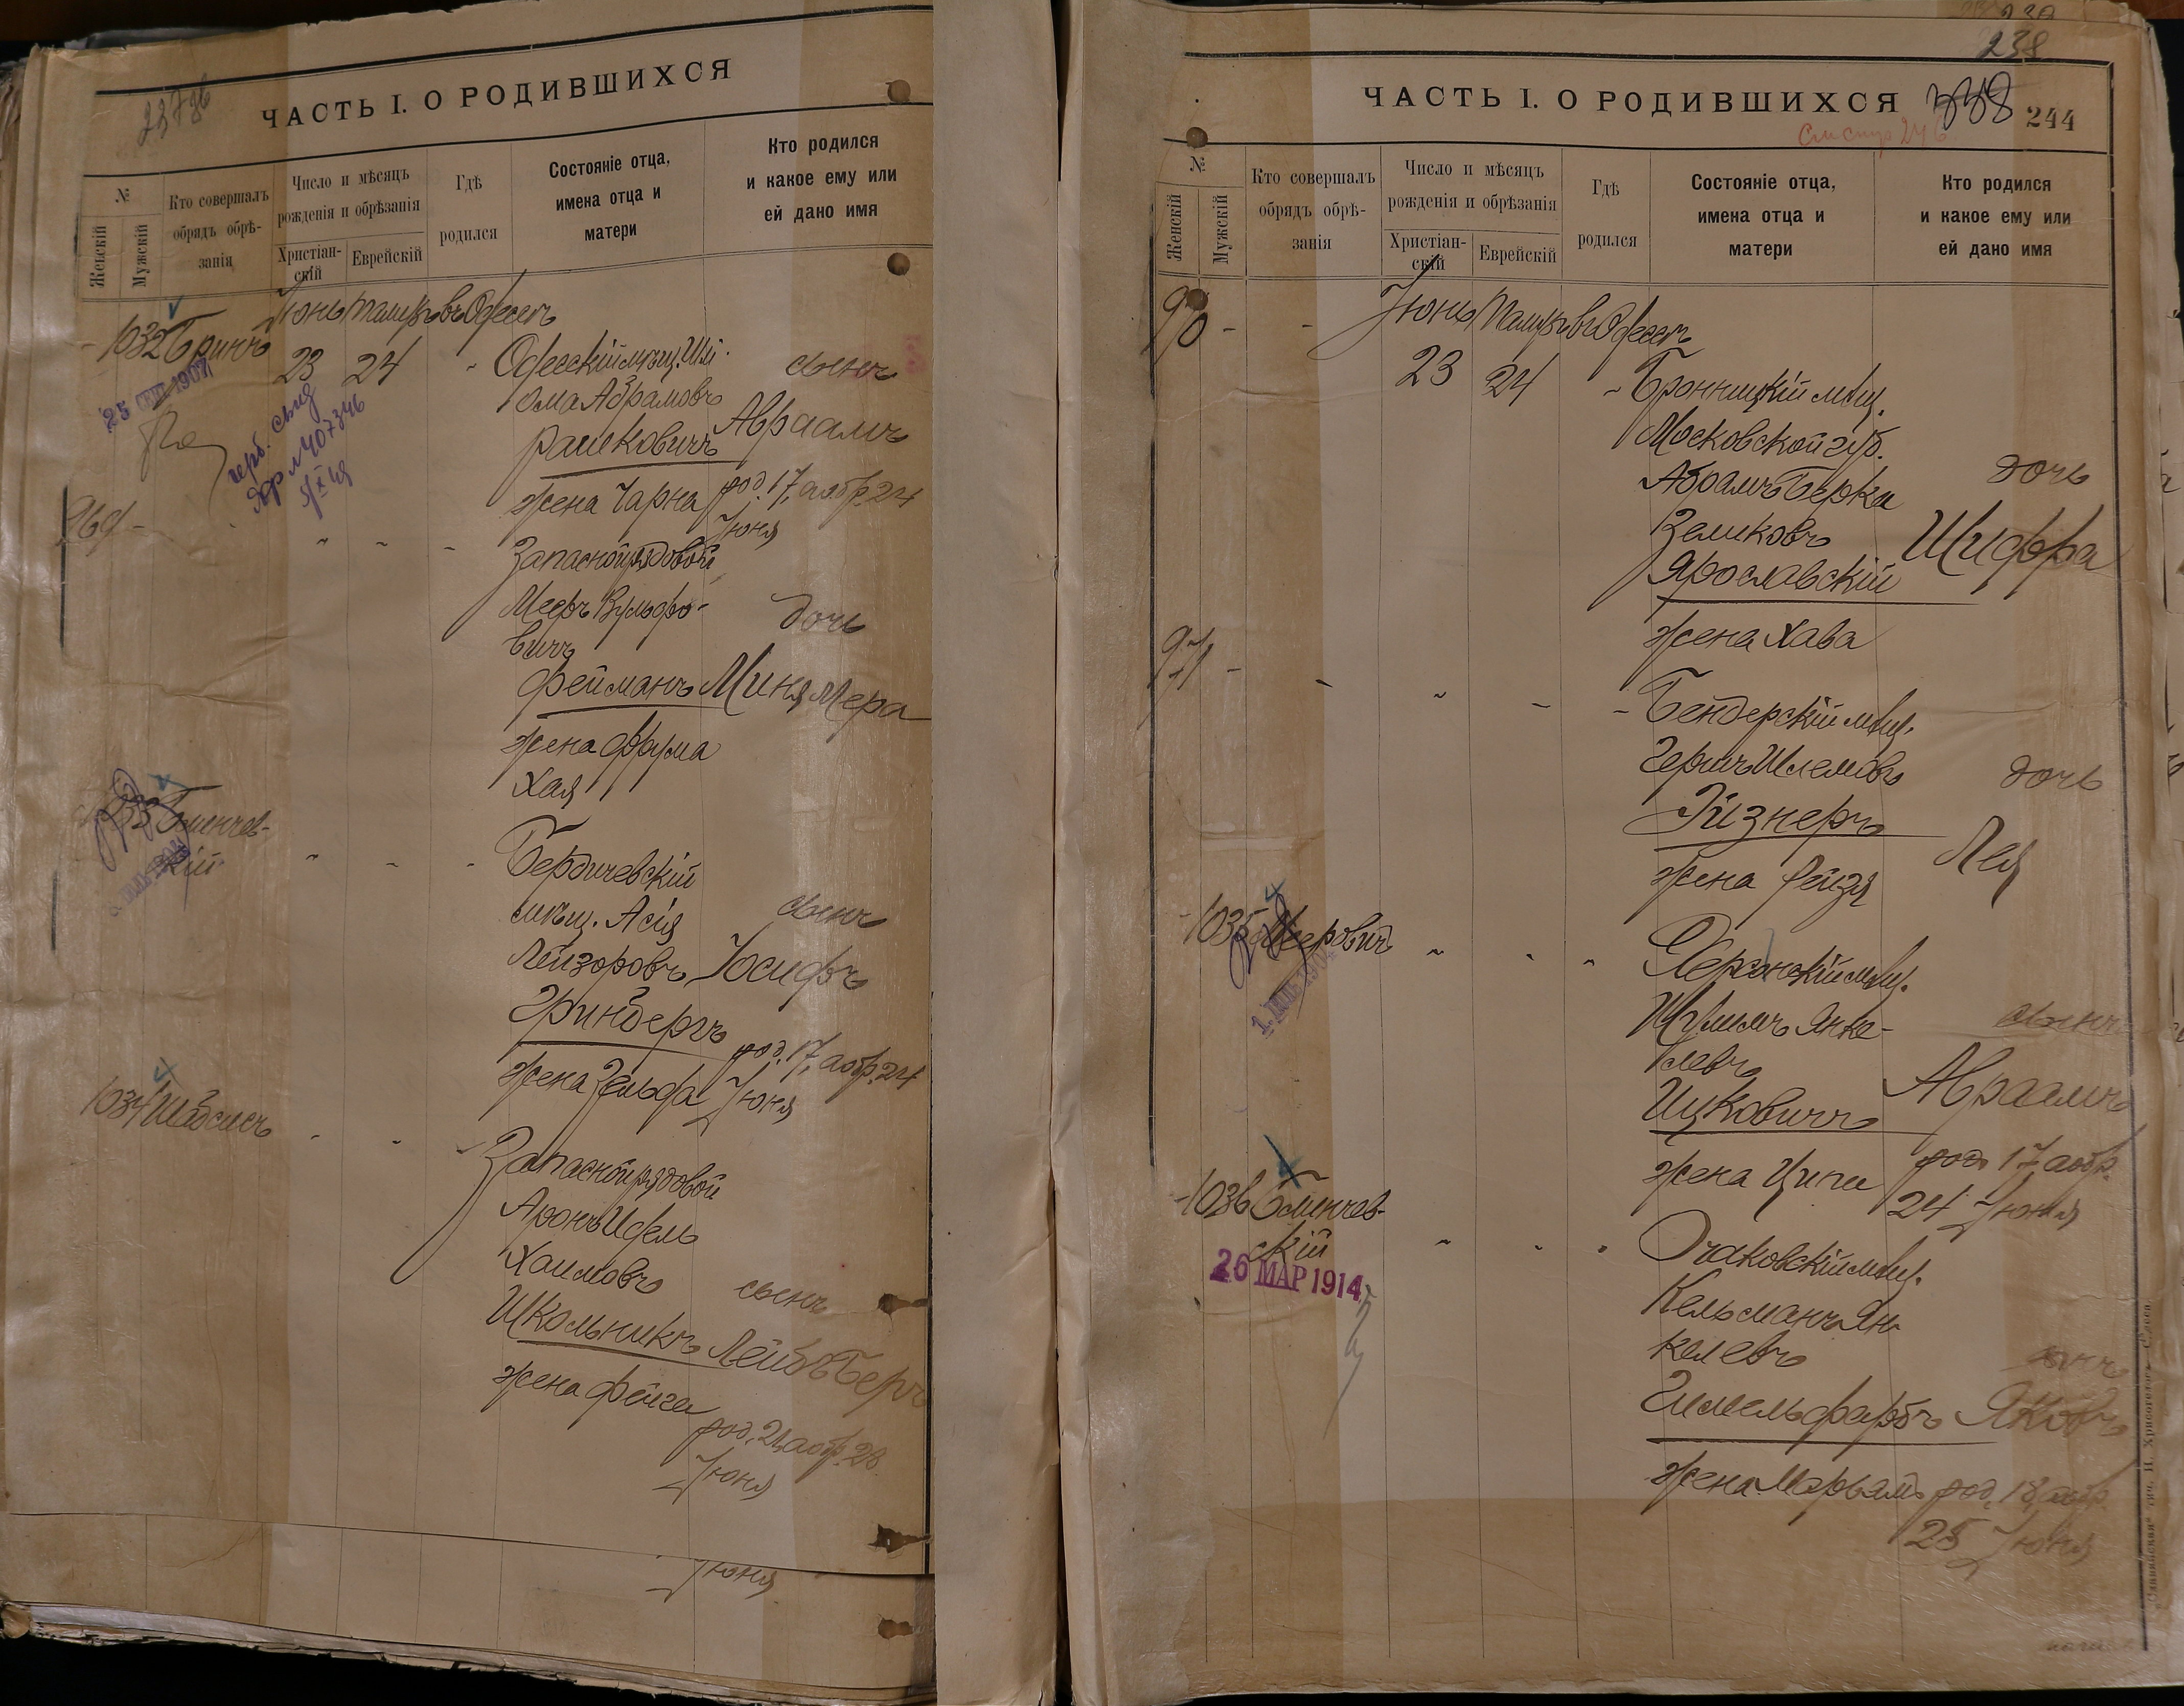 ЧАСТЬ I. О РОДИВШИХСЯ
№
Женскій
Мужскій
Кто совершалъ
обрядъ обрѣ-
занія
Число и мѣсяцъ
рожденія и обрѣзанія
Христіан-
скій
Еврейскій
Гдѣ
родился
Состояніе отца,
имена отца и
матери
Кто родился
и какое ему или
ей дано имя
Іюнь Тамузъ въ Одессѣ
1032 Бричъ 23 24 - Одесскій мѣщ. Шл.
ома Абрамовъ
Рашковичъ
жена Чарна
сынъ
Авраамъ
род. 17, аобр. 24
Іюня
25 1907
герб. свид
407346
969 - " - - Запасной рядовой
Мееръ Вульфо-
вичъ
Фейманъ
жена Фрума
Хая
дочь
Миня Мера
Бленчев-
кій " - - Бердичевскій
мѣщ. Асія
Лейзоровъ
Гринбергъ
жена Зельда
сынъ
Іосифъ
род. 17, аобр. 24
Іюня
1034 Шабсисъ - - - Запасной рядовой
Аронъ Идель
Хаимовъ
Школьникъ
жена Фейга
сынъ
Лейбъ Беръ
род. 21, аобр. 28
Іюня
Іюня
238
ЧАСТЬ I. О РОДИВШИХСЯ
244
См стр 246
№
Женскій
Мужскій
Кто совершалъ
обрядъ обрѣ-
занія
Число и мѣсяцъ
рожденія и обрѣзанія
Христіан-
скій
Еврейскій
Гдѣ
родился
Состояніе отца,
имена отца и
матери
Кто родился
и какое ему или
ей дано имя
970 - - Іюнь Тамузъ въ Одессѣ
23 24 - Бронницкій мѣщ.
Московской губ.
Абрамъ Берка
Зеликовъ
Ярославскій
жена Хава
дочь
Шифра
971 - - " - - Бендерскій мѣщ.
Гершъ Шлемовъ
Гизнеръ
жена Рейзя
дочь
Лея
1035 Меерович " - " Херсонскій мѣщ.
Шулимъ Янке-
левъ
Ицковичъ
жена Ципа
сынъ
Авраамъ
род. 17 аобр.
24 Іюня
1036 Бленчев-
скій " - " Очаковскій мѣщ.
Кельманъ Ян-
келевъ
Гимельфарбъ
жена Марьямъ
сынъ
Яковъ
род. 18, аобр.
25 Іюня
26 МАР 1914